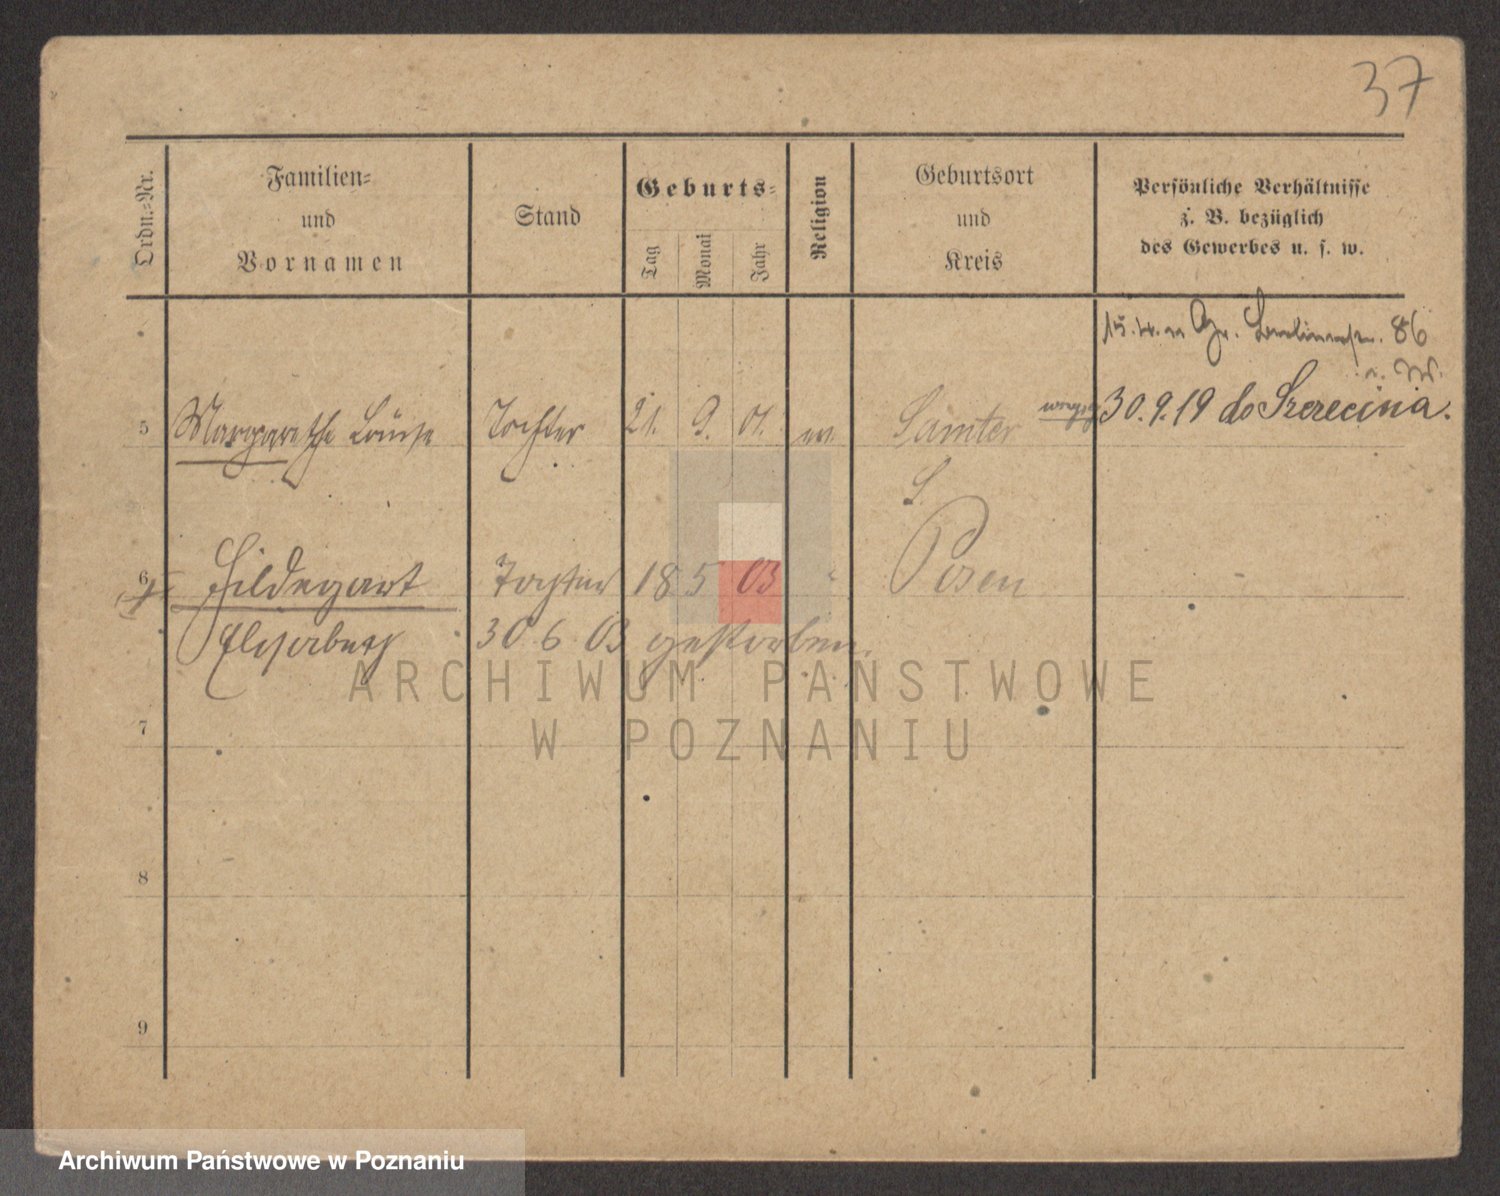 37
Ordn.-Nr.
Familien-
und
Vornamen
Stand
Geburts-
Tag
Monat
Jahr
Religion
Geburtsort
und
Kreis
Persönliche Verhältnisse
z. B. bezüglich
des Gewerbes u. s. w.
Gr. Berlinerstr. 86
5 Margarethe Louise Tochter 21. 9. 01. ev. Samter 30.9.19 do Szczecina.
6 Hildegart Tochter 18 5 03 Posen
Elisabeth 30 6 03 gestorben.
7
8
9
ARCHIWUM PAŃSTWOWE
W POZNANIU
Archiwum Państwowe w Poznaniu